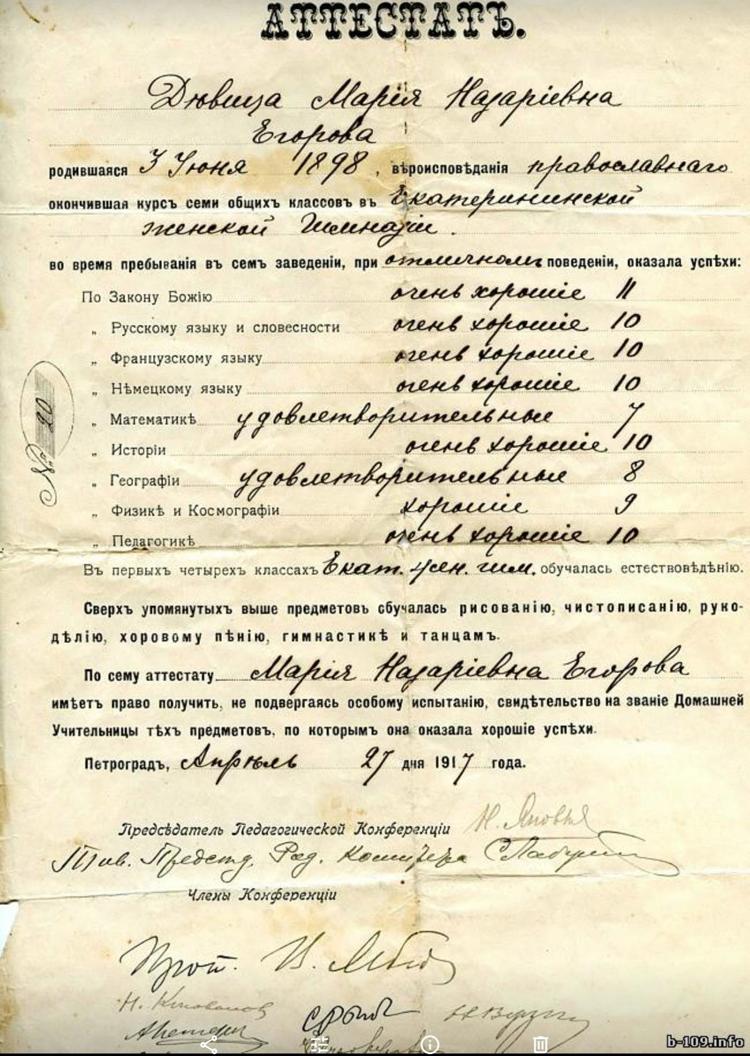 АТТЕСТАТЪ.
Дѣвица Марія Назаріевна
Егорова
родившаяся 3 Іюня 1898, вѣроисповѣданія православнаго
окончившая курсъ семи общихъ классовъ въ Екатерининской
женской Гимназіи.
во время пребыванія въ семъ заведеніи, при отличномъ поведеніи, оказала успѣхи:
По Закону Божію очень хорошіе 11
„ Русскому языку и словесности очень хорошіе 10
„ Французскому языку очень хорошіе 10
„ Нѣмецкому языку очень хорошіе 10
„ Математикѣ удовлетворительные 7
№ 20
„ Исторіи очень хорошіе 10
„ Географіи удовлетворительные 8
„ Физикѣ и Космографіи хорошіе 9
„ Педагогикѣ очень хорошіе 10
Въ первыхъ четырехъ классахъ Екат. жен. гим. обучалась естествовѣдѣнію.
Сверхъ упомянутыхъ выше предметовъ обучалась рисованію, чистописанію, руко-
дѣлію, хоровому пѣнію, гимнастикѣ и танцамъ.
По сему аттестату Марія Назаріевна Егорова
имѣетъ право получить, не подвергаясь особому испытанію, свидѣтельство на званіе Домашней
Учительницы тѣхъ предметовъ, по которымъ она оказала хорошіе успѣхи.
Петроградъ, Апрѣль 27 дня 1917 года.
Предсѣдатель Педагогической Конференціи Н.
Предсѣд. Род. Комитета
Члены Конференціи
Прот. В.
Н.
b-109.info